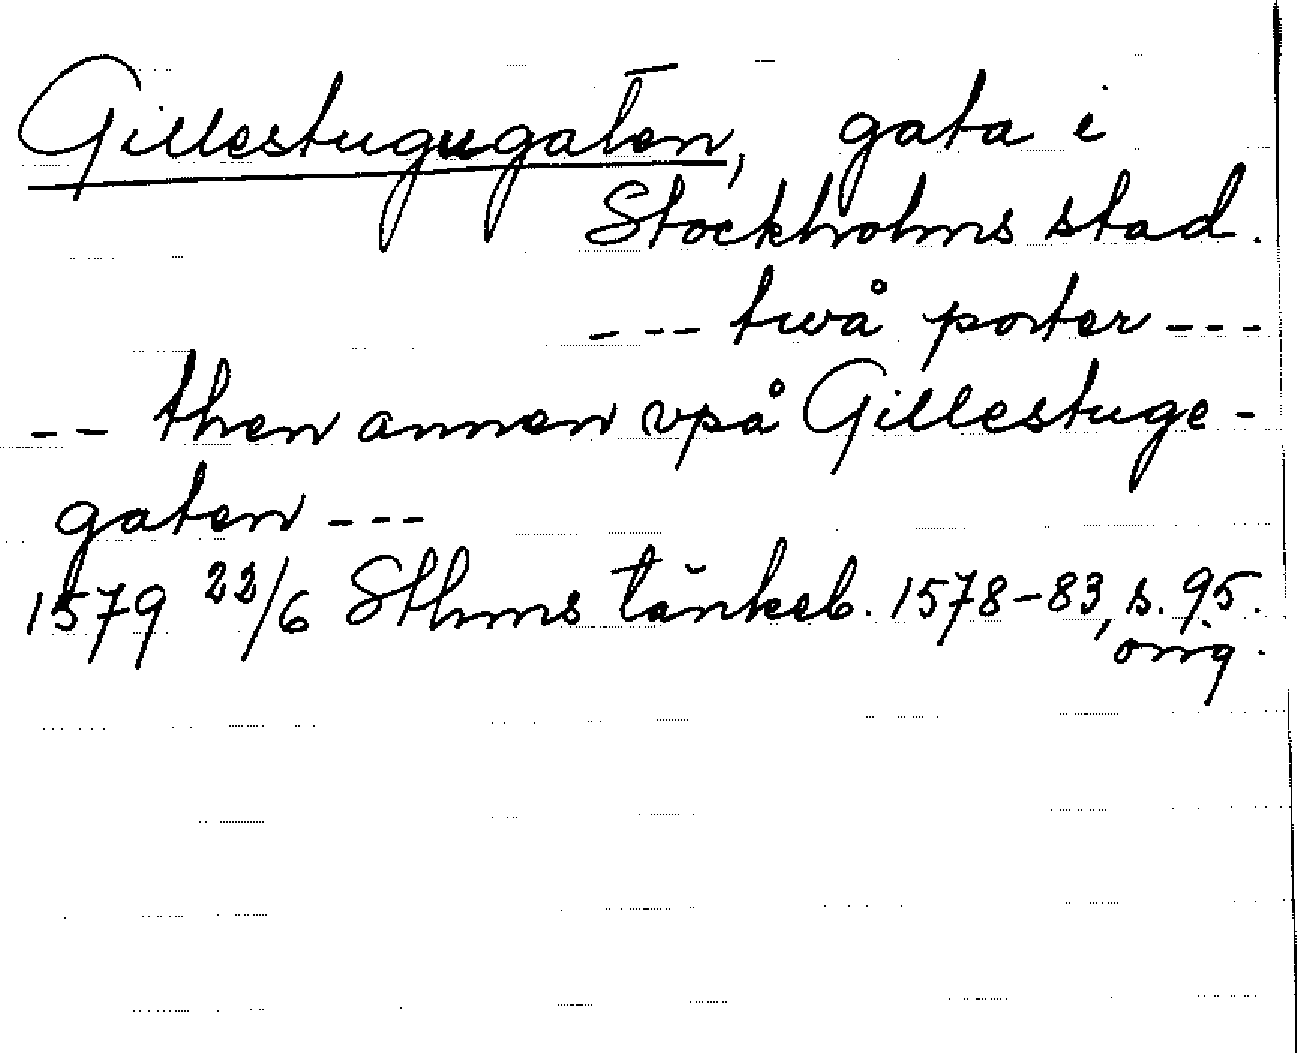 Gillestugugaten, gata i
Stockholms stad.
--- twå porter ---
-- then annen vpå Gillestuge-
gaten ---
1579 22/6 Sthms tänkeb. 1578-83, s. 95.
orig.